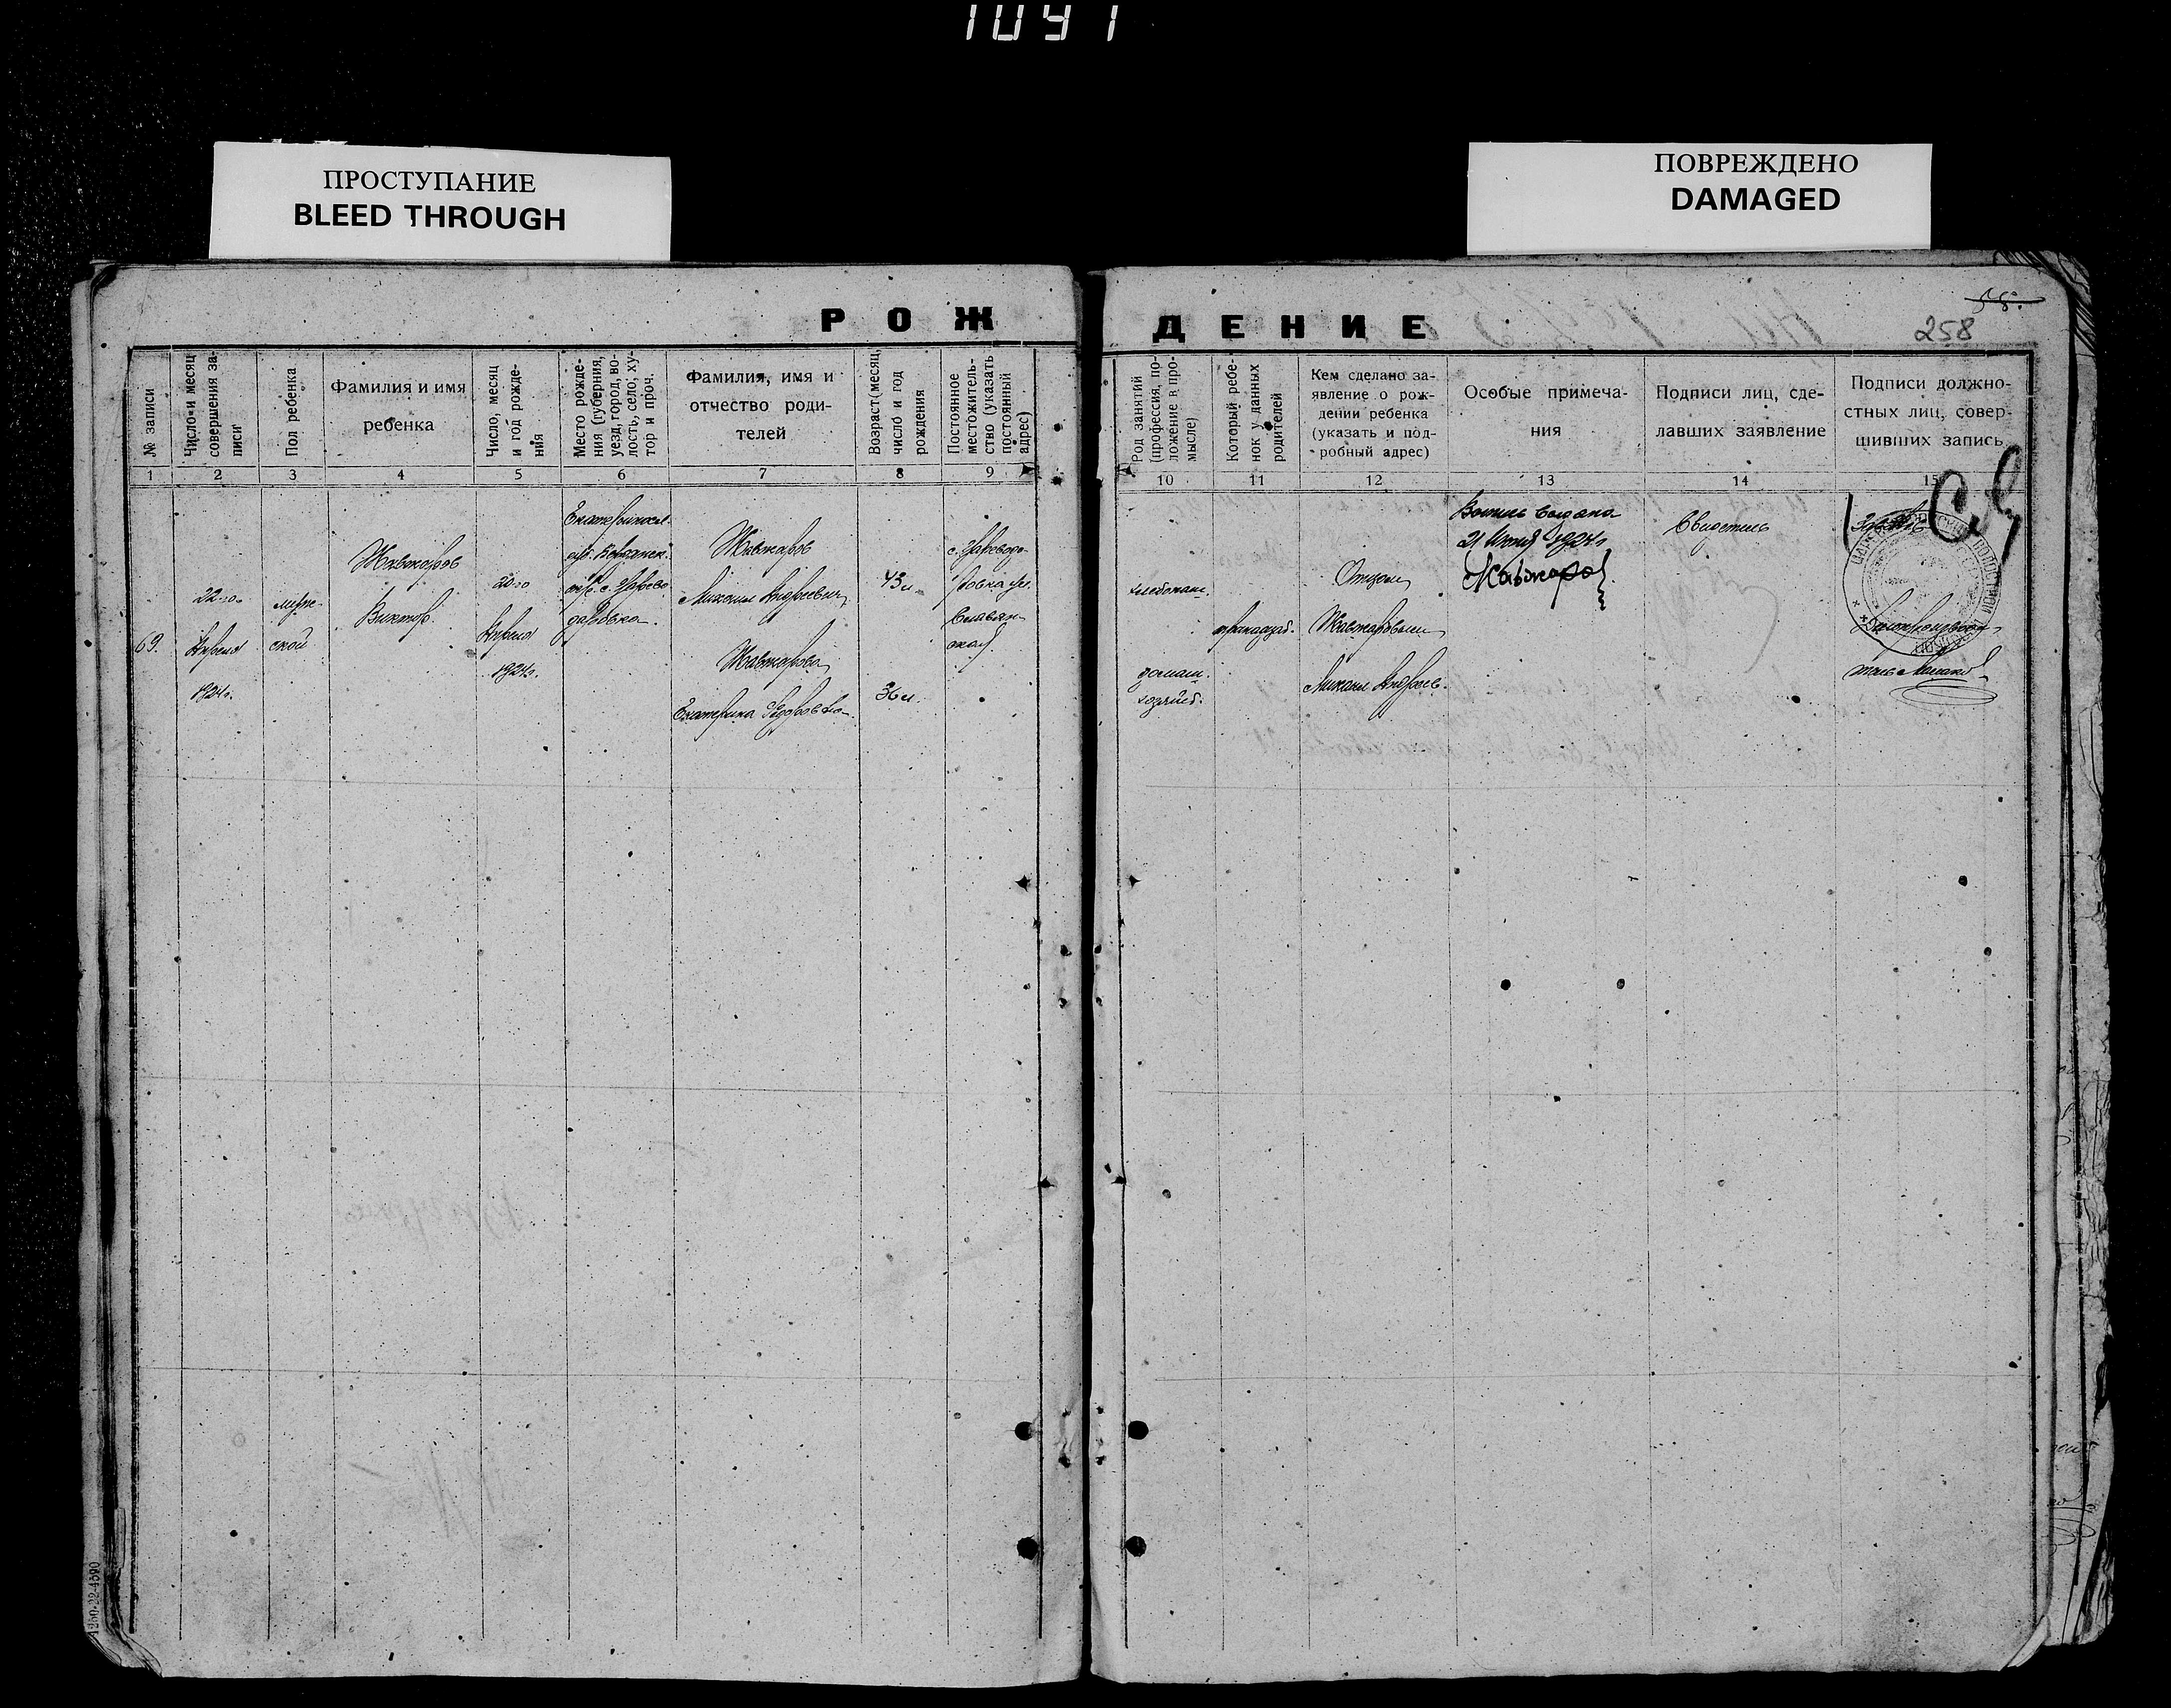 1091
ПРОСТУПАНИЕ
BLEED THROUGH
ПОВРЕЖДЕНО
DAMAGED
РОЖДЕНИЕ
58.
258
№ записи
Число и месяц
совершения за-
писи
Пол ребенка
Фамилия и имя
ребенка
Число, месяц
и год рожде-
ния
Место рожде-
ния (губерния,
уезд, город, во-
лость, село, ху-
тор и проч.
Фамилия, имя и
отчество роди-
телей
Возраст (месяц,
число и год
рождения
Постоянное
местожитель-
ство (указать
постоянный
адрес)
Род занятий
(профессия, по-
ложение в про-
мысле)
Который ребе-
нок у данных
родителей
Кем сделано за-
явление о рож-
дении ребенка
(указать и под-
робный адрес)
Особые примеча-
ния
Подписи лиц, сде-
лавших заявление
Подписи должно-
стных лиц, совер-
шивших запись
1 2 3 4 5 6 7 8 9 10 11 12 13 14 15
69.
22-го
Апреля
1924г.
муж-
ской
Жавжаров
Виктор.
20-го
Апреля
1924г.
Екатериносл.
окр. с. Царево
даровка
Жавжаров
Михаил Андреевич
Жавжарова
Екатерина Федоровна
43 л.
36 л.
с. Царево
хлебопаш.
домаш.
хозяйств.
Отцом
Жавжаровым
Михаил Андреев.
Выпись выдана
21 Июня 1924г.
Свидетель
1250-22-4590